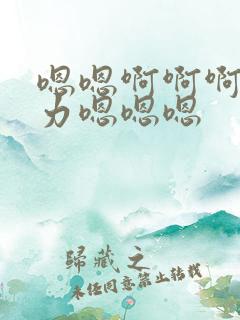 嗯嗯啊啊啊
力嗯嗯嗯
歸藏之
未经同意禁止转载